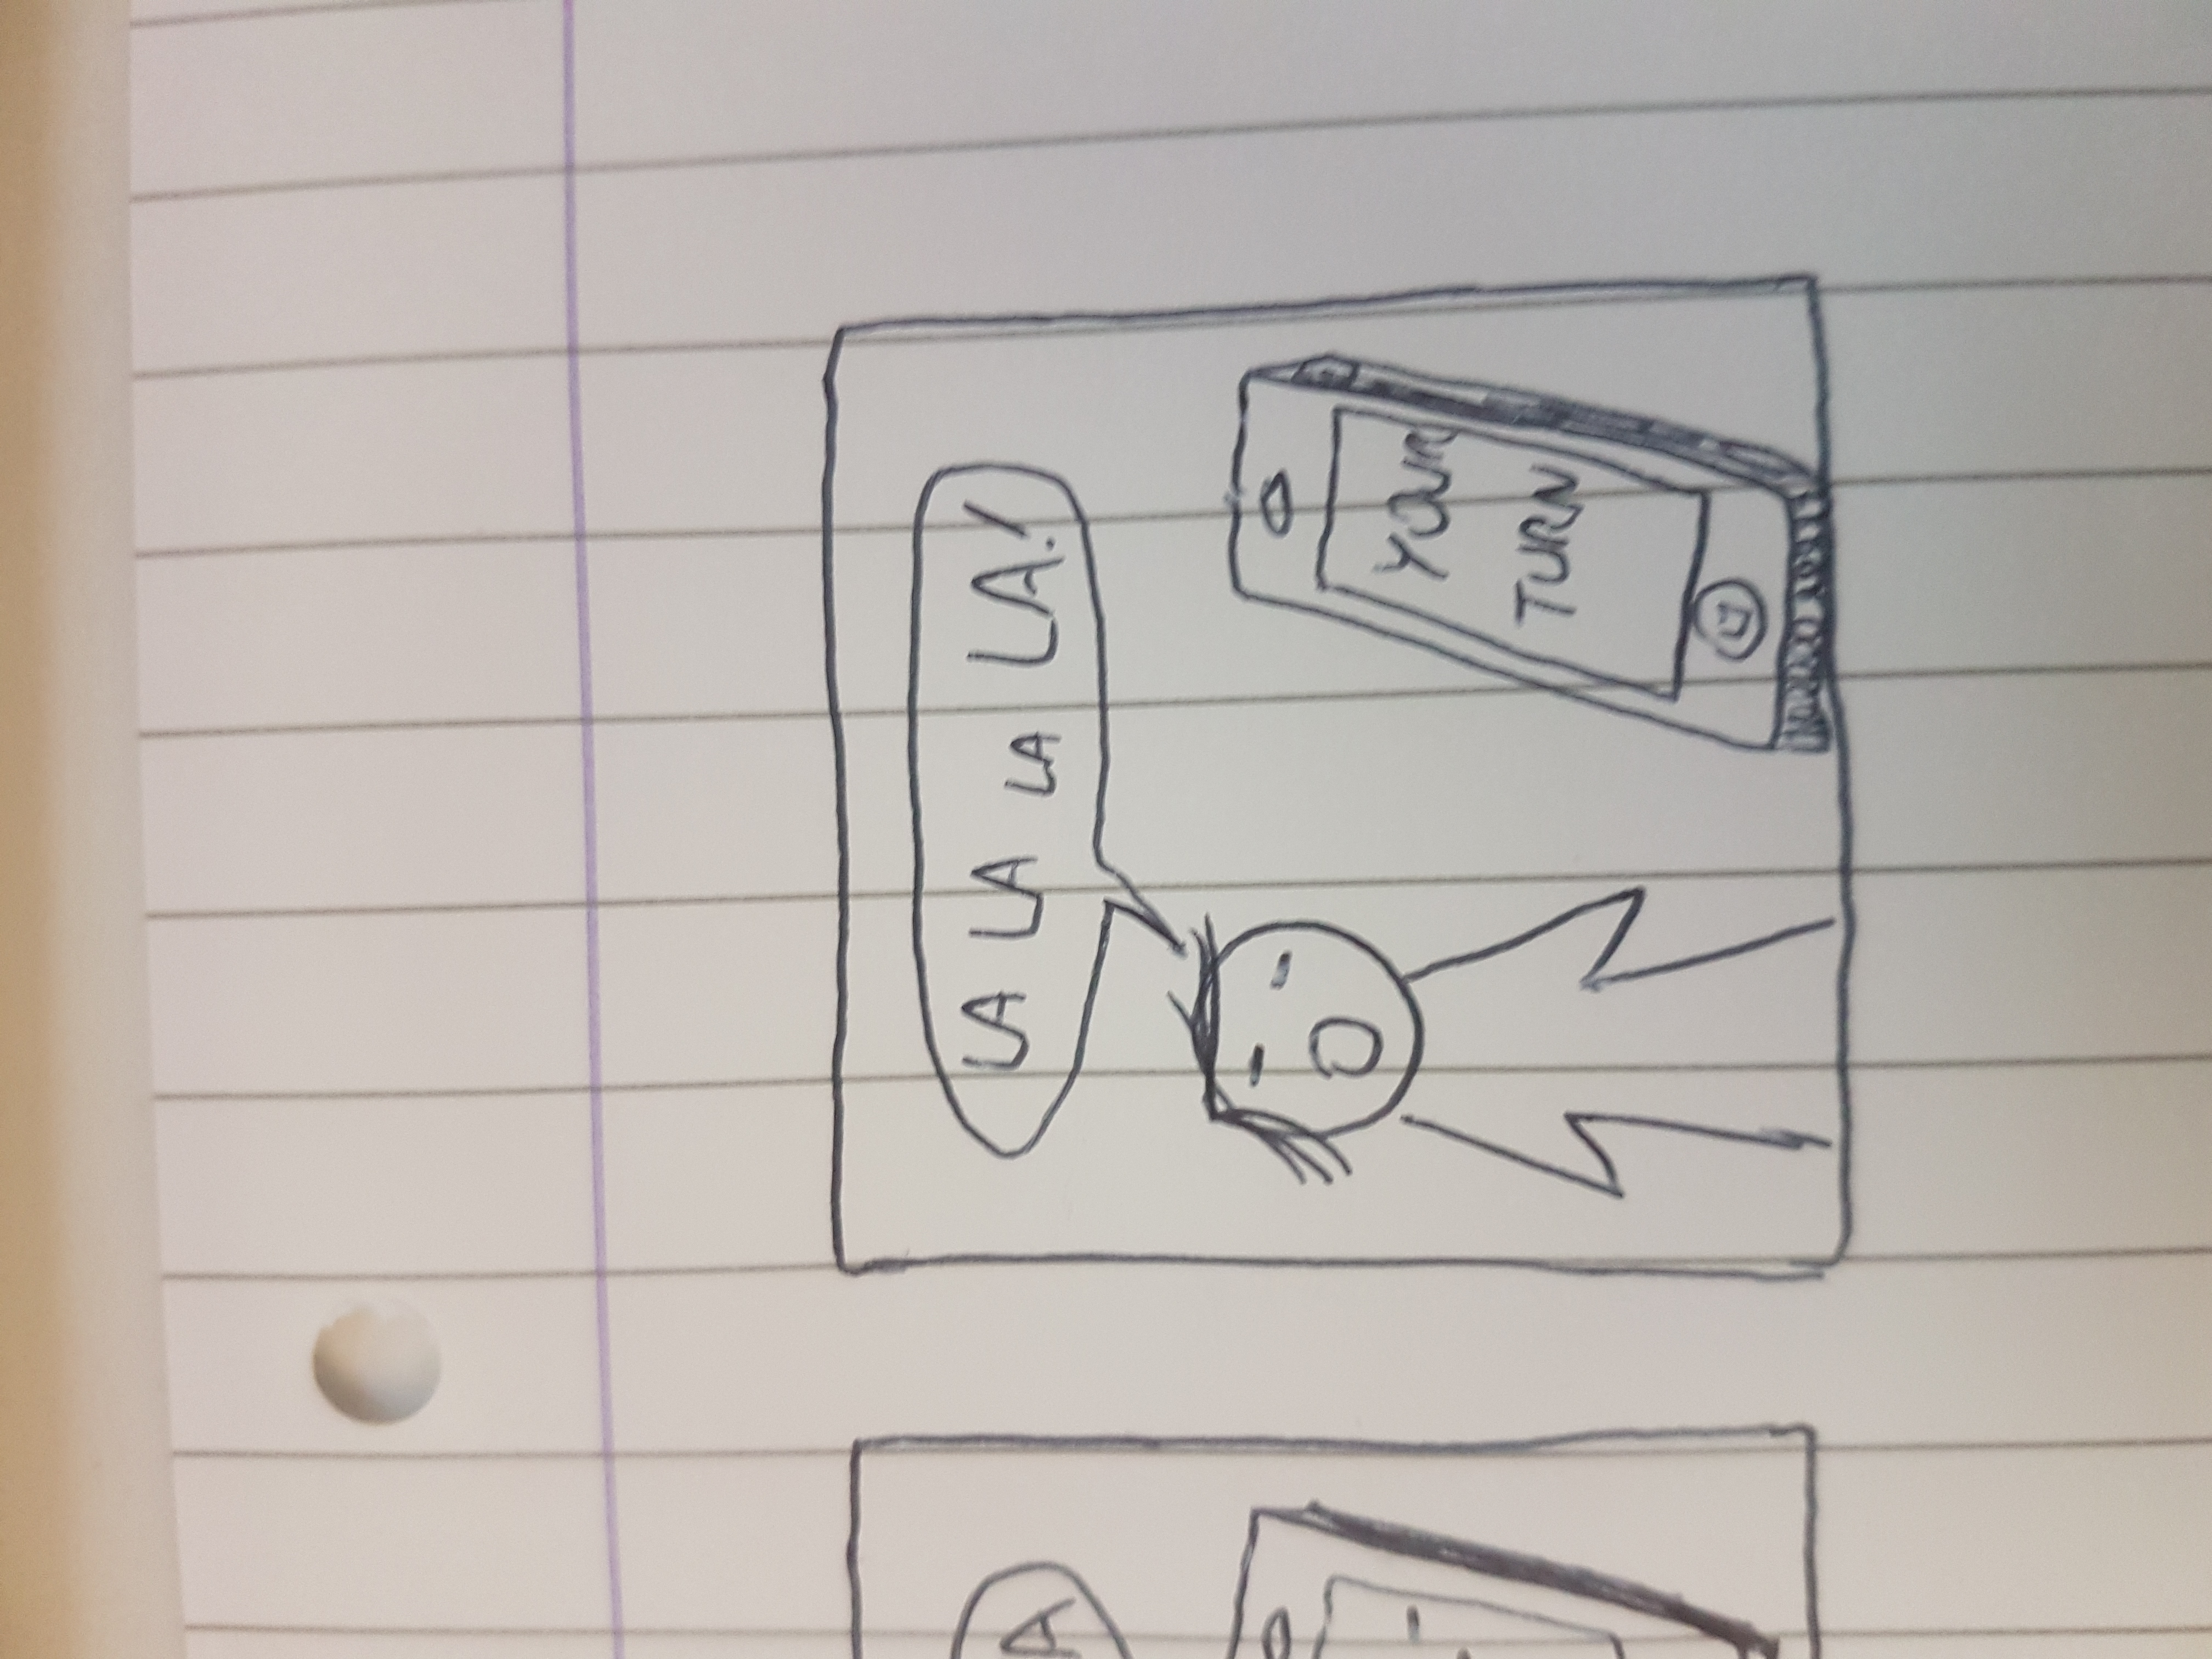 A
LA LA LA LA!
YOUR
TURN